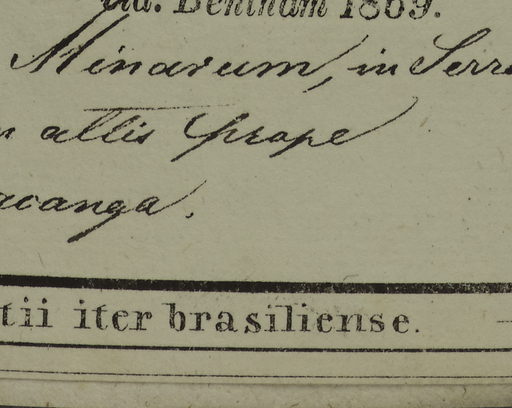 did. Bentham 1869.
Minarum, in Serra
altis prope
acanga.
tii iter brasiliense.